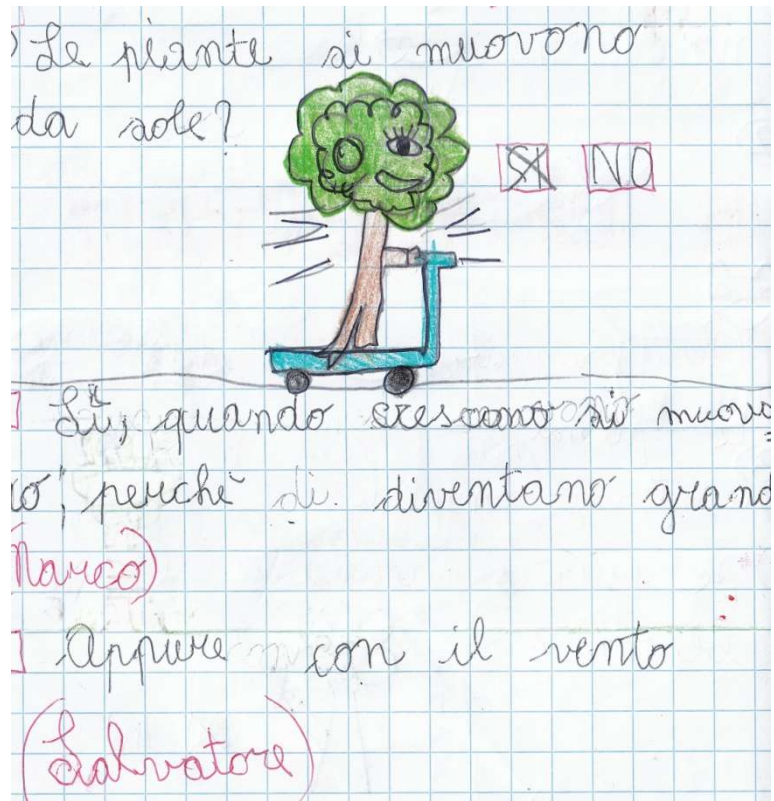 Le piante si muovono
da sole?
SI NO
Sì, quando crescono si muovo
no, perchè di. diventano grand
(Marco)
Oppure con il vento
(Salvatore)